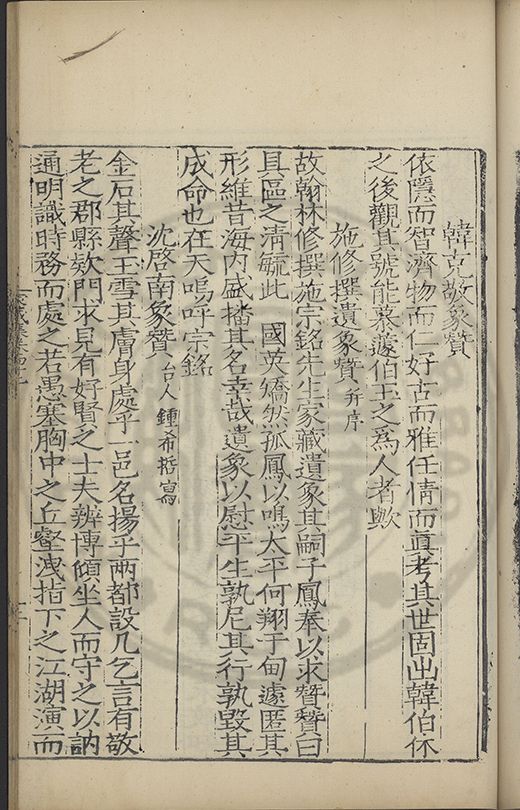 韓克敬象贊
依隱而智濟物而仁好古而雅任情而真考其世固出韓伯休
之後觀其號能慕蘧伯玉之為人者歟
施修撰遺象贊并序
故翰林修撰施宗銘先生家藏遺象其嗣子鳳奉以求贊贊曰
具區之清毓此 國英矯然孤鳳以鳴太平何翔于甸遽匿其
形維昔海内盛播其名幸哉遺象以慰平生孰尼其行孰毀其
成命也在天嗚呼宗銘
沈啓南象贊台人鍾希哲寫
金石其聲玉雪其膚身處乎一邑名揚乎兩都設几乞言有敬
老之郡縣欵門求見有好賢之士夫辨博傾坐人而守之以訥
通明識時務而處之若愚塞胸中之丘壑洩指下之江湖演而